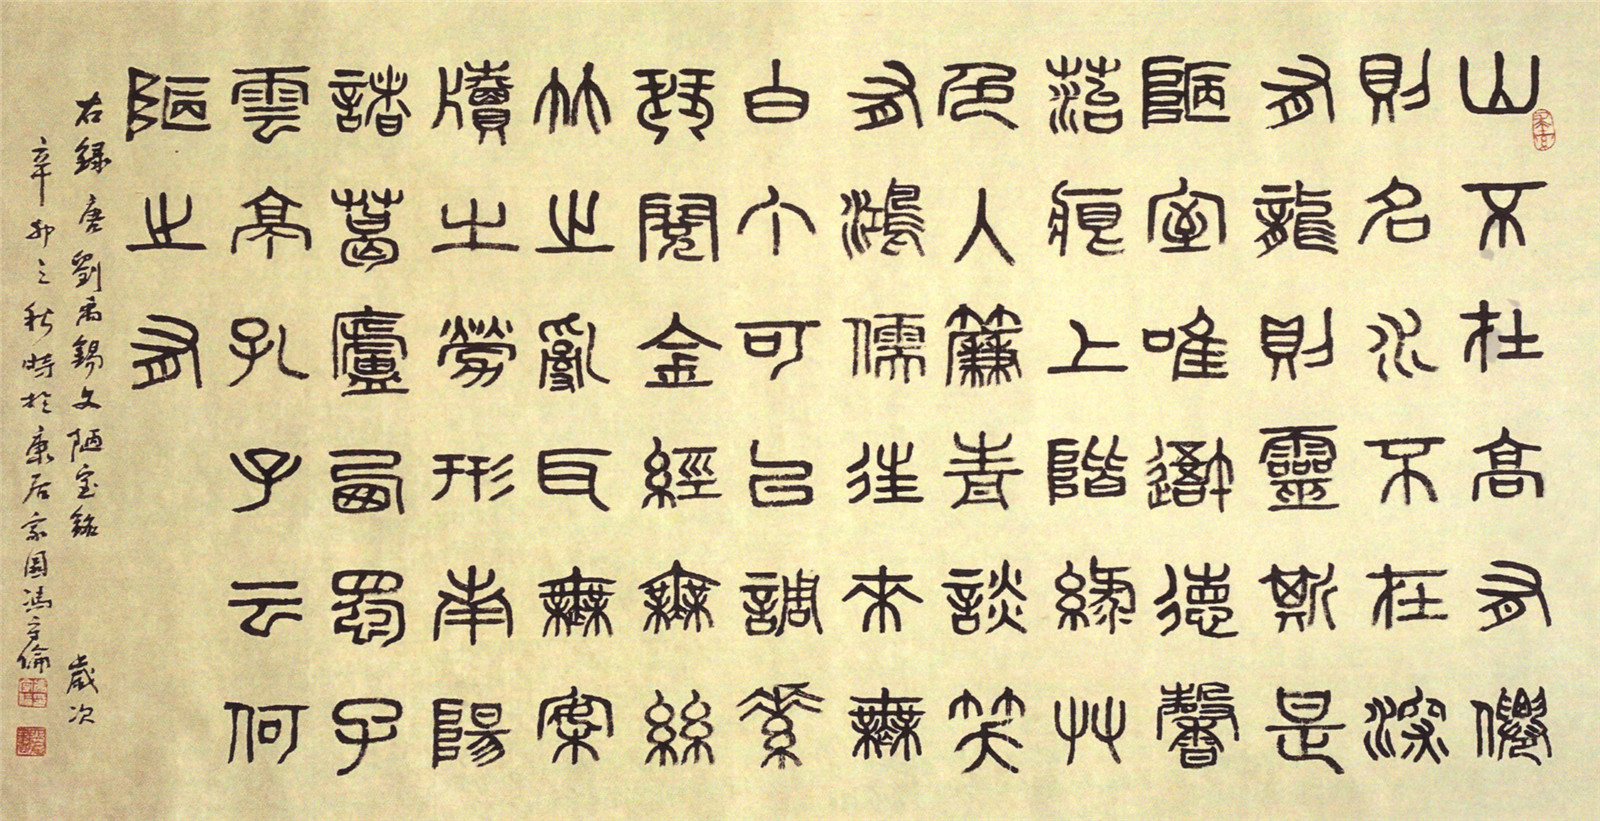 山不在高有僊
則名水不在深
有龍則靈斯是
陋室唯吾德馨
菭痕上階綠艸
色入簾青談笑
有鴻儒往來無
白丁可以調素
琴閱金經無絲
竹之亂耳無案
牘之勞形南陽
諸葛廬西蜀子
雲亭孔子云何
陋之有
右錄唐劉禹錫文陋室銘 歲次
辛卯之秋時於康居家園馮倫